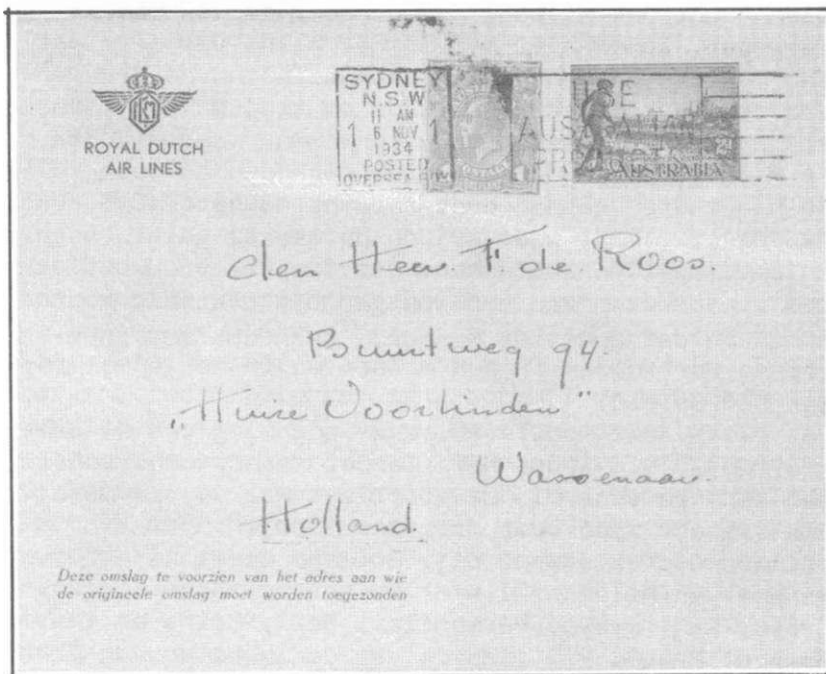 KLM
ROYAL DUTCH
AIR LINES
SYDNEY
N.S.W
11 AM
1 6 NOV 1
1934
POSTED
OVERSEA
USE
AUSTRALIAN
AUSTRALIA
den Heer. F. de Roos.
Buurtweg 94.
„Huize Voorlinden"
Wassenaar.
Holland.
Deze omslag te voorzien van het adres aan wie
de origineele omslag moet worden toegezonden